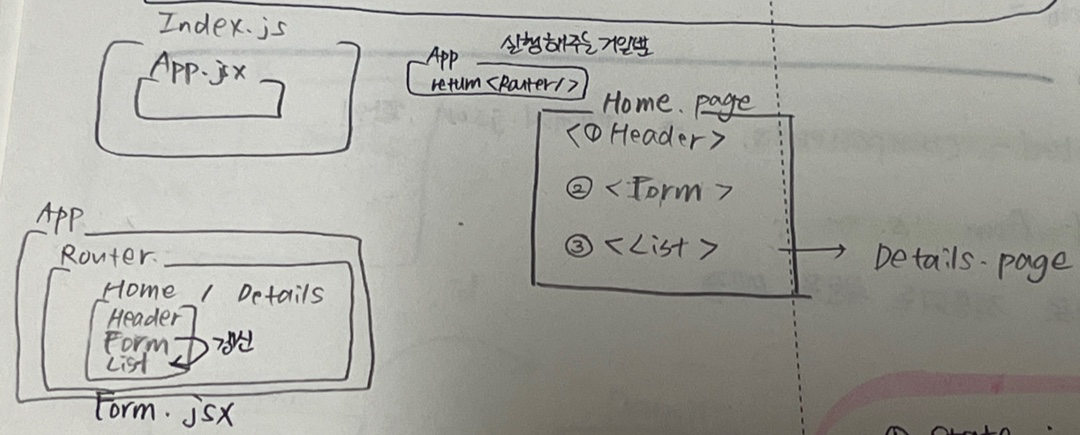 Index.js
App.jsx
실행해주는 거일뿐
App
return <Router/>
Home.page
<① Header>
② <Form>
③ <List>
Details.page
App
Router
Home / Details
Header
Form
List
갱신
Form.jsx